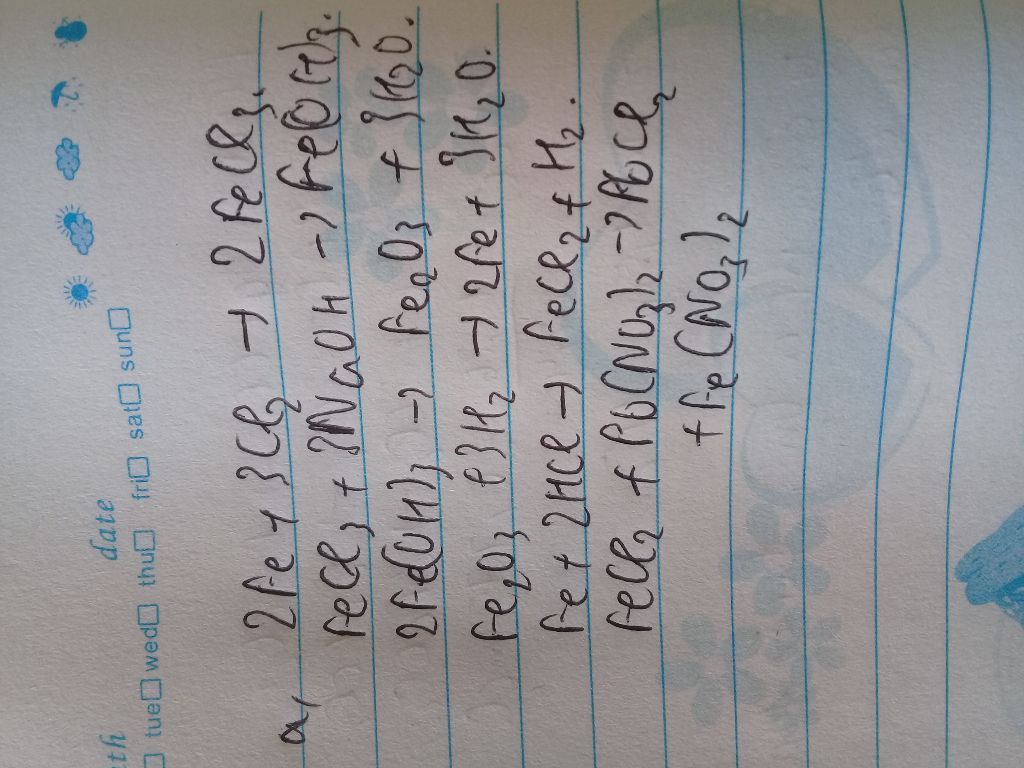 th date
tue wed thu fri sat sun
a, 2Fe + 3Cl₂ → 2FeCl₃.
FeCl₃ + 3NaOH → Fe(OH)₃.
2Fe(OH)₃ → Fe₂O₃ + 3H₂O.
Fe₂O₃ + 3H₂ → 2Fe + 3H₂O.
Fe + 2HCl → FeCl₂ + H₂.
FeCl₂ + Pb(NO₃)₂ → PbCl₂
+ Fe(NO₃)₂